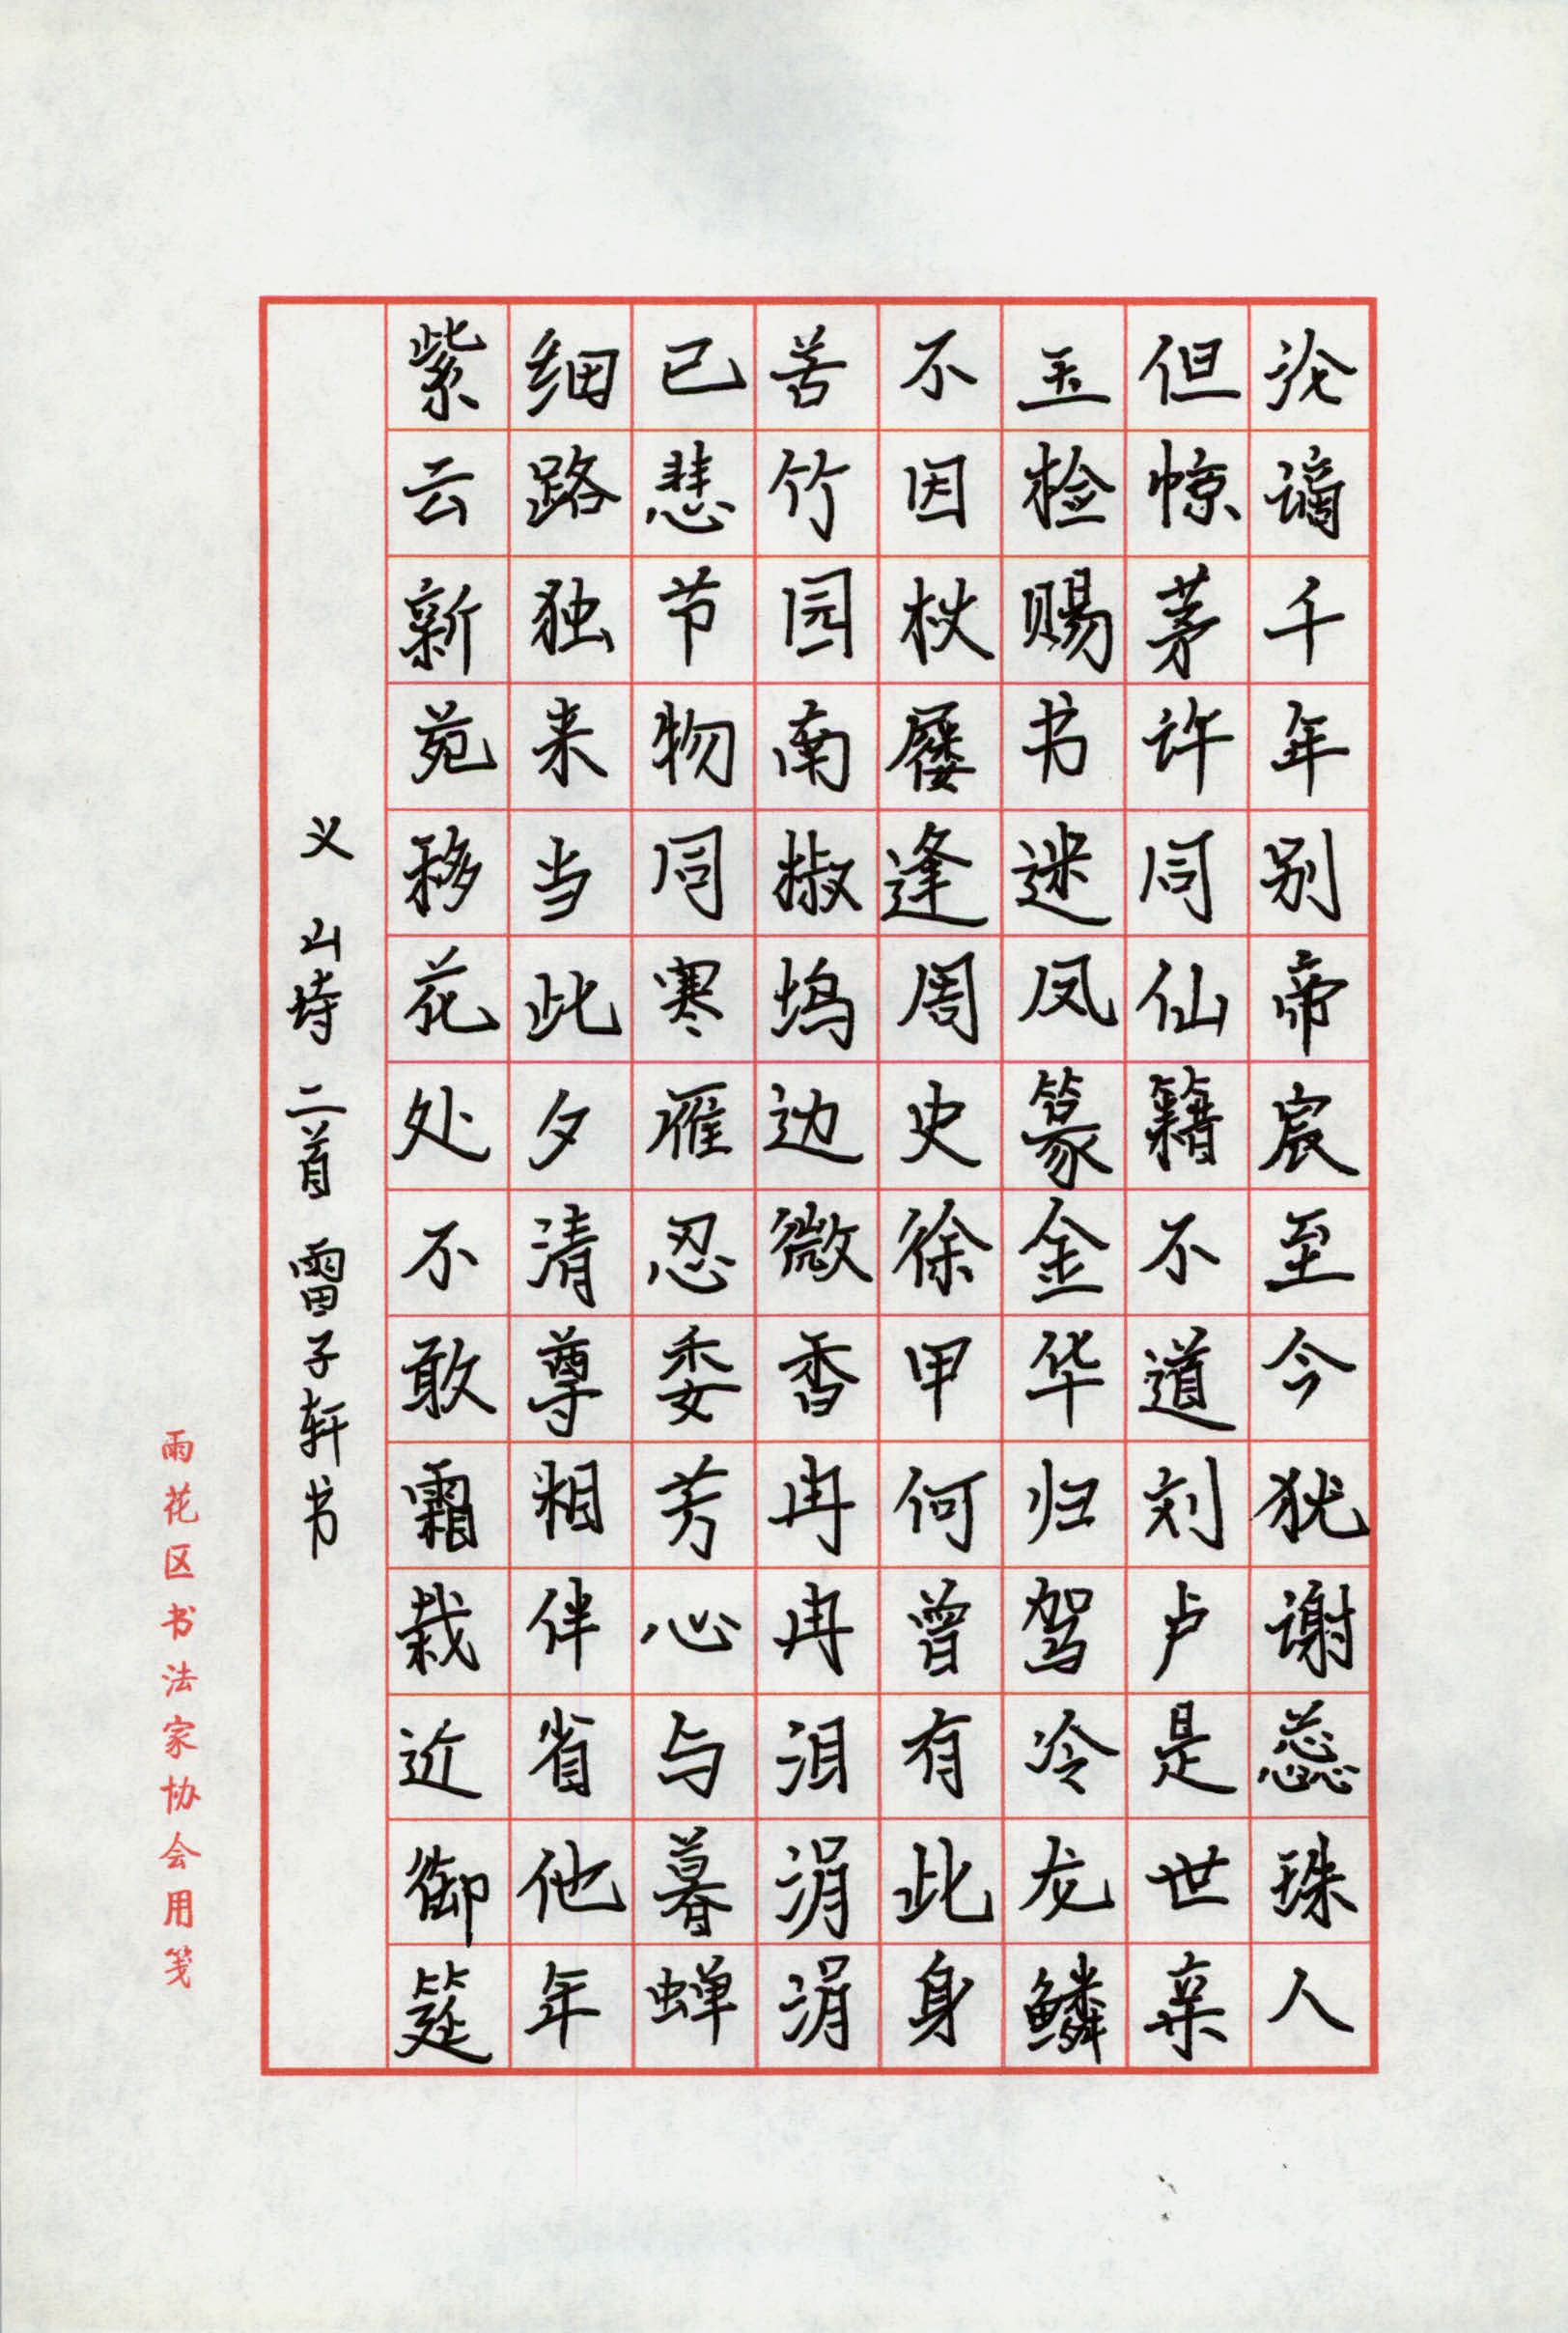 沦谪千年别帝宸至今犹谢蕊珠人
但惊茅许同仙籍不道刘卢是世亲
玉检赐书迷凤篆金华归驾冷龙鳞
不因杖屦逢周史徐甲何曾有此身
苦竹园南椒坞边微香冉冉泪涓涓
已悲节物同寒雁忍委芳心与暮蝉
细路独来当此夕清尊相伴省他年
紫云新苑移花处不敢霜栽近御筵
义山诗二首雷子轩书
雨花区书法家协会用笺